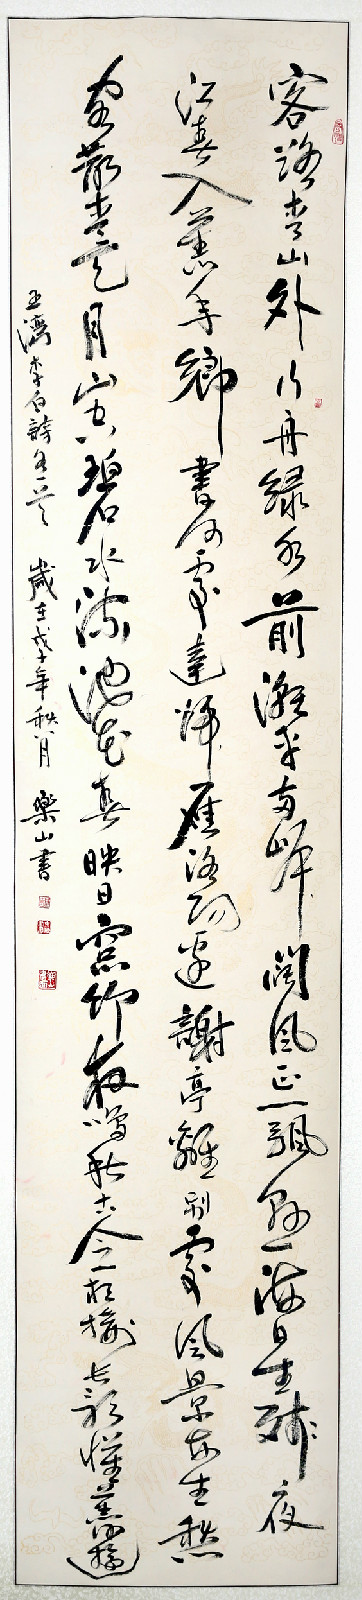 客路青山外行舟緑水前潮平兩岸闊風正一帆懸海日生殘夜
江春入舊年鄉書何處達歸雁洛陽邊謝亭離別處風景每生愁
客散青天月山空碧水流池花春映日窗竹夜鳴秋古今一相接長歌懷舊遊
王灣李白詩各一首 歲在戊子年秋月 樂山書